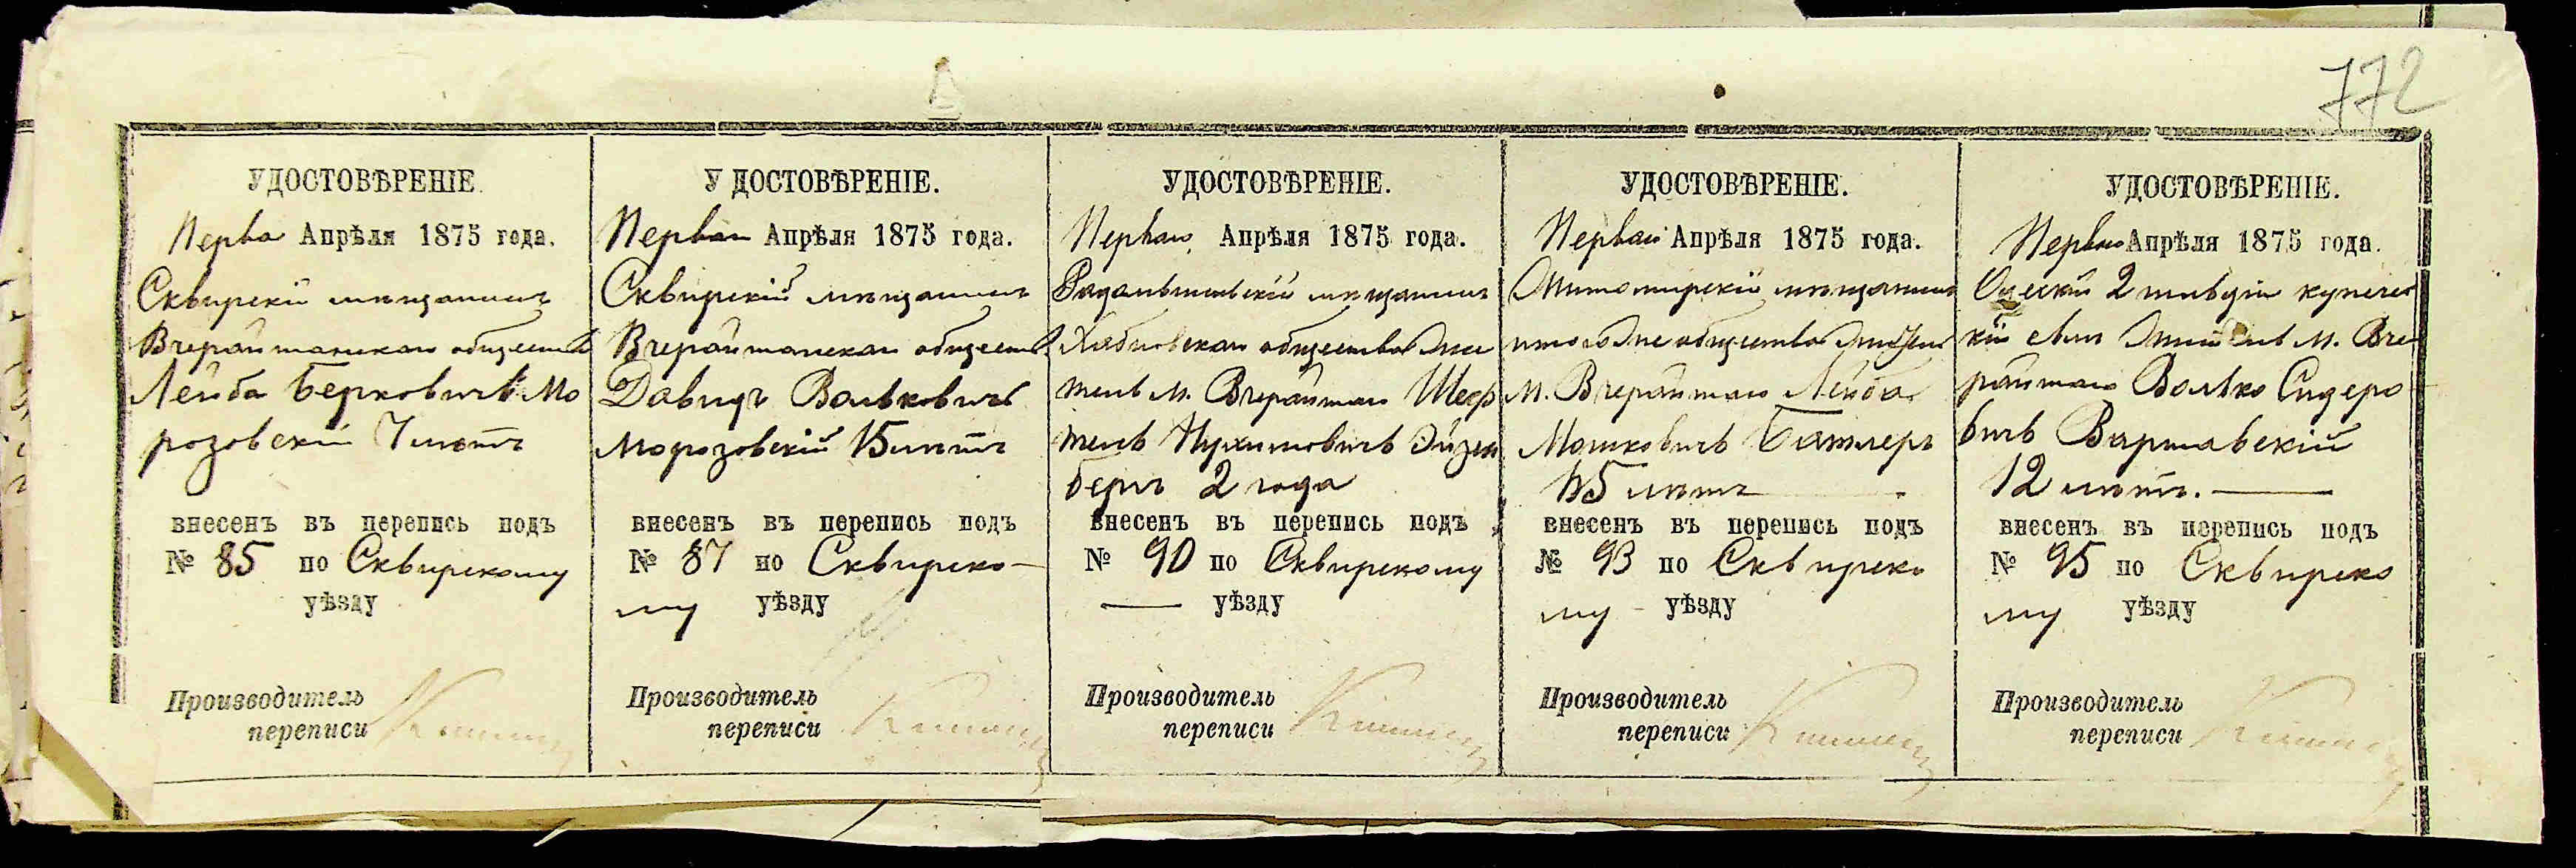 772
УДОСТОВѢРЕНІЕ
Перва Апрѣля 1875 года.
Сквирскій мѣщанинъ
Вчерайшанскаго общества
Лейба Берковичъ Мо
розовскій 7 лѣтъ
внесенъ въ перепись подъ
№ 85 по Сквирскому
уѣзду
Производитель
переписи
УДОСТОВѢРЕНІЕ.
Перваго Апрѣля 1875 года.
Сквирскій мѣщанинъ
Вчерайшанскаго обществ
Давидъ Вольковичъ
Морозовскій 15 лѣтъ
внесенъ въ перепись подъ
№ 87 по Сквирско-
му уѣзду
Производитель
переписи
УДОСТОВѢРЕНІЕ.
Перваго Апрѣля 1875 года.
Радомысльскій мѣщанинъ
Хабновскаго общества жи
тель м. Вчерайшаго
Нухимовичъ Эйзен
бергъ 2 года
внесенъ въ перепись подъ
№ 90 по Сквирскому
— уѣзду
Производитель
переписи
УДОСТОВѢРЕНІЕ.
Перваго Апрѣля 1875 года.
Житомирскій мѣщанинъ
того же общества житель
м. Вчерайшаго Лейба
Мошковичъ Батлеръ
45 лѣтъ
внесенъ въ перепись подъ
№ 93 по Сквирско
му - уѣзду
Производитель
переписи
УДОСТОВѢРЕНІЕ.
Перваго Апрѣля 1875 года.
Одескій 2 гильдіи купечес
кій сынъ жит м. Вче
райшаго Волько Сидеро
вичъ Варшавскій
12 лѣтъ. —
внесенъ въ перепись подъ
№ 95 по Сквирско
му уѣзду
Производитель
переписи